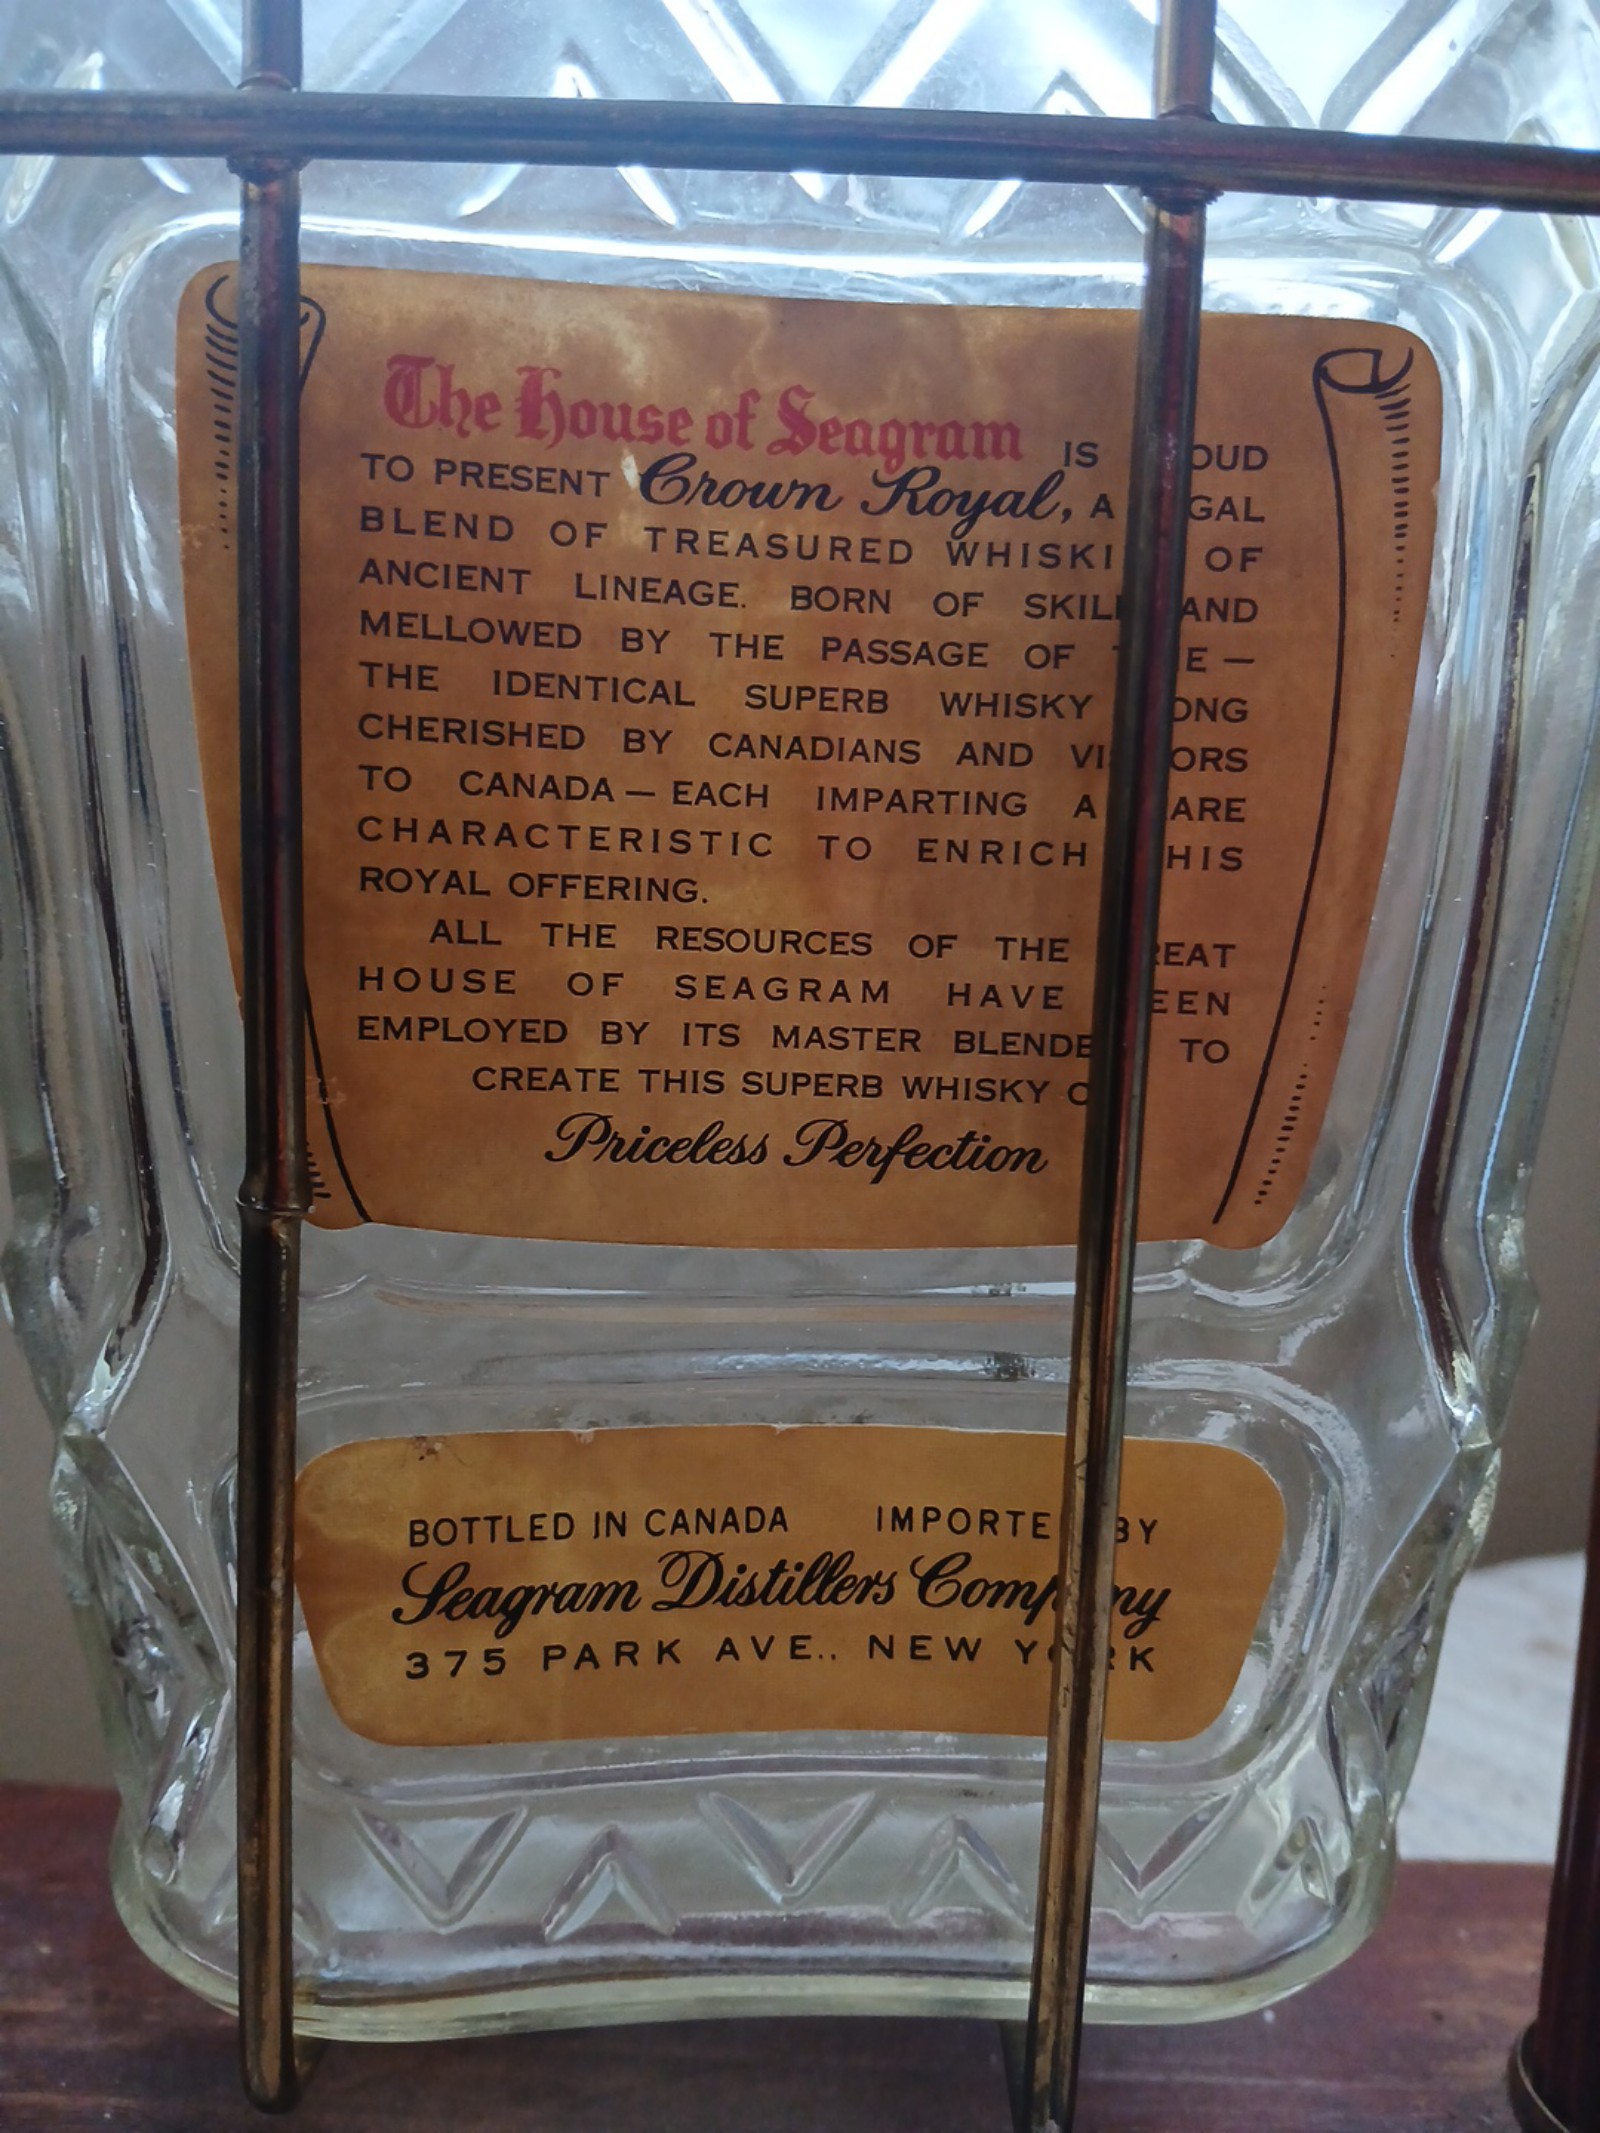 The House of Seagram IS
TO PRESENT Crown Royal, A
BLEND OF TREASURED OF
ANCIENT LINEAGE. BORN OF SKILL AND
MELLOWED BY THE PASSAGE OF —
THE IDENTICAL SUPERB WHISKY
CHERISHED BY CANADIANS AND
TO CANADA — EACH IMPARTING A
CHARACTERISTIC TO ENRICH
ROYAL OFFERING.
ALL THE RESOURCES OF THE
HOUSE OF SEAGRAM HAVE
EMPLOYED BY ITS MASTER TO
CREATE THIS SUPERB WHISKY
Priceless Perfection
BOTTLED IN CANADA IMPORTED BY
Seagram Distillers Company
375 PARK AVE., NEW YORK